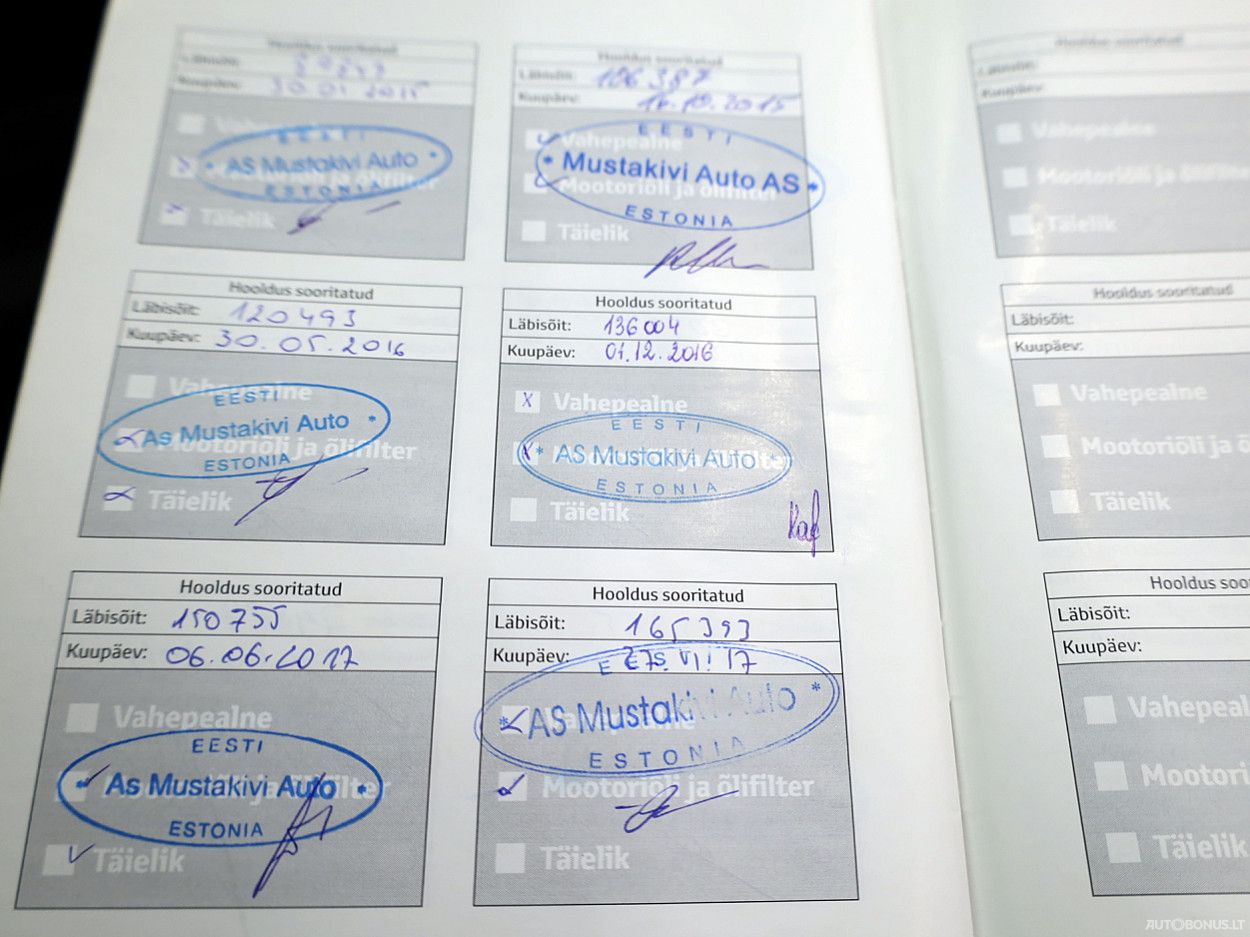 Hooldus sooritatud
Läbisõit:
Kuupäev: 30.01 2015
Vahepealne
EESTI
AS Mustakivi Auto
Mootoriõli ja õlifilter
ESTONIA
Täielik
Hooldus sooritatud
Läbisõit: 106 387
Kuupäev: 10.2015
EESTI
Vahepealne
* Mustakivi Auto AS *
Mootoriõli ja õlifilter
ESTONIA
Täielik
Hooldus sooritatud
Läbisõit: 120 493
Kuupäev: 30. 05. 2016
Vahepealne
EESTI
As Mustakivi Auto *
Mootoriõli ja õlifilter
ESTONIA
Täielik
Hooldus sooritatud
Läbisõit: 136 004
Kuupäev: 01.12.2016
X Vahepealne
EESTI
X * AS Mustakivi Auto *
Mootoriõli ja õlifilter
ESTONIA
Täielik
Hooldus sooritatud
Läbisõit: 150 755
Kuupäev: 06.06.2017
Vahepealne
EESTI
* As Mustakivi Auto *
Mootoriõli ja õlifilter
ESTONIA
Täielik
Hooldus sooritatud
Läbisõit: 165 393
Kuupäev: 17
EESTI
Vahepealne
* AS Mustakivi Auto *
ESTONIA
Mootoriõli ja õlifilter
Täielik
Hooldus sooritatud
Läbisõit:
Kuupäev:
Vahepealne
Mootoriõli ja õlifilter
Täielik
Hooldus sooritatud
Läbisõit:
Kuupäev:
Vahepealne
Mootoriõli ja õ
Täielik
Hooldus soo
Läbisõit:
Kuupäev:
Vahepeal
Mootori
Täielik
AUTOBONUS.LT